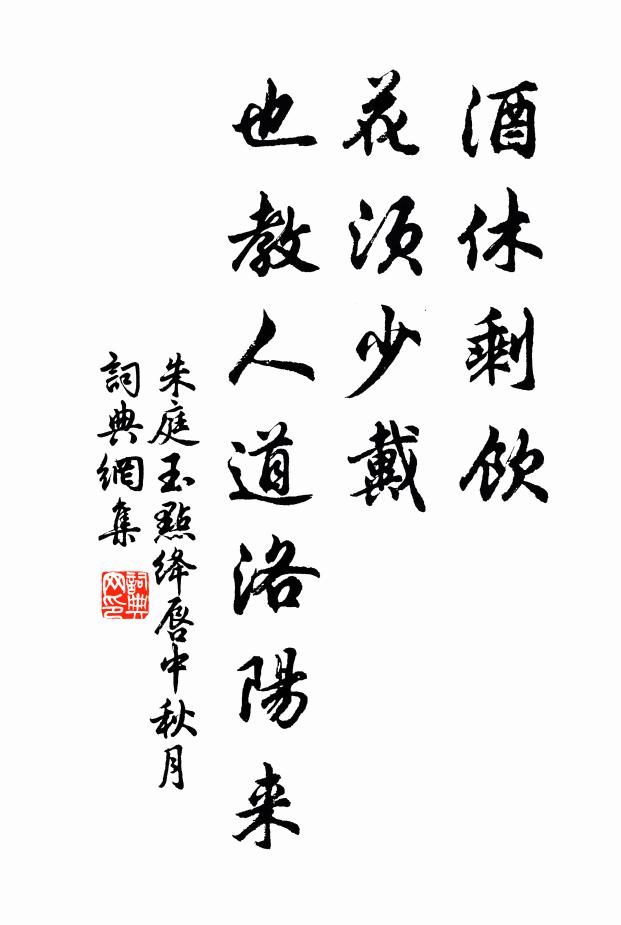 酒休剩飲
花須少戴
也教人道洛陽来
朱庭玉點絳唇中秋月
詞典網集
詞典网印